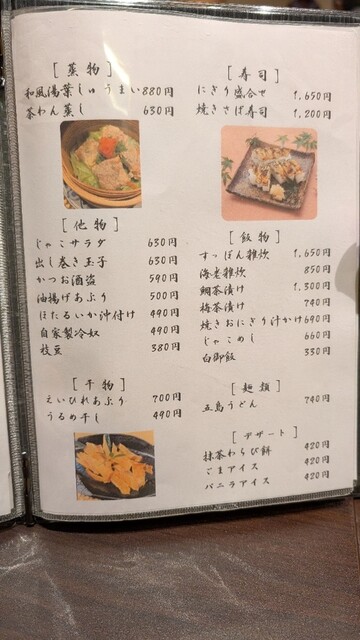 [ 蒸 物 ]
和風湯葉しゅうまい 880円
茶わん蒸し 630円
[ 他 物 ]
じゃこサラダ 630円
出し巻き玉子 630円
かつお酒盗 590円
油揚げあぶり 500円
ほたるいか沖付け 490円
自家製冷奴 490円
枝豆 380円
[ 干 物 ]
えいひれあぶり 700円
うるめ干し 490円
[ 寿 司 ]
にぎり盛合せ 1,650円
焼きさば寿司 1,200円
[ 飯 物 ]
すっぽん雑炊 1,650円
海老雑炊 850円
鯛茶漬け 1,300円
梅茶漬け 740円
焼きおにぎり汁かけ 690円
じゃこめし 660円
白御飯 330円
[ 麺 類 ]
五島うどん 740円
[ デザート ]
抹茶わらび餅 420円
ごまアイス 420円
バニラアイス 420円